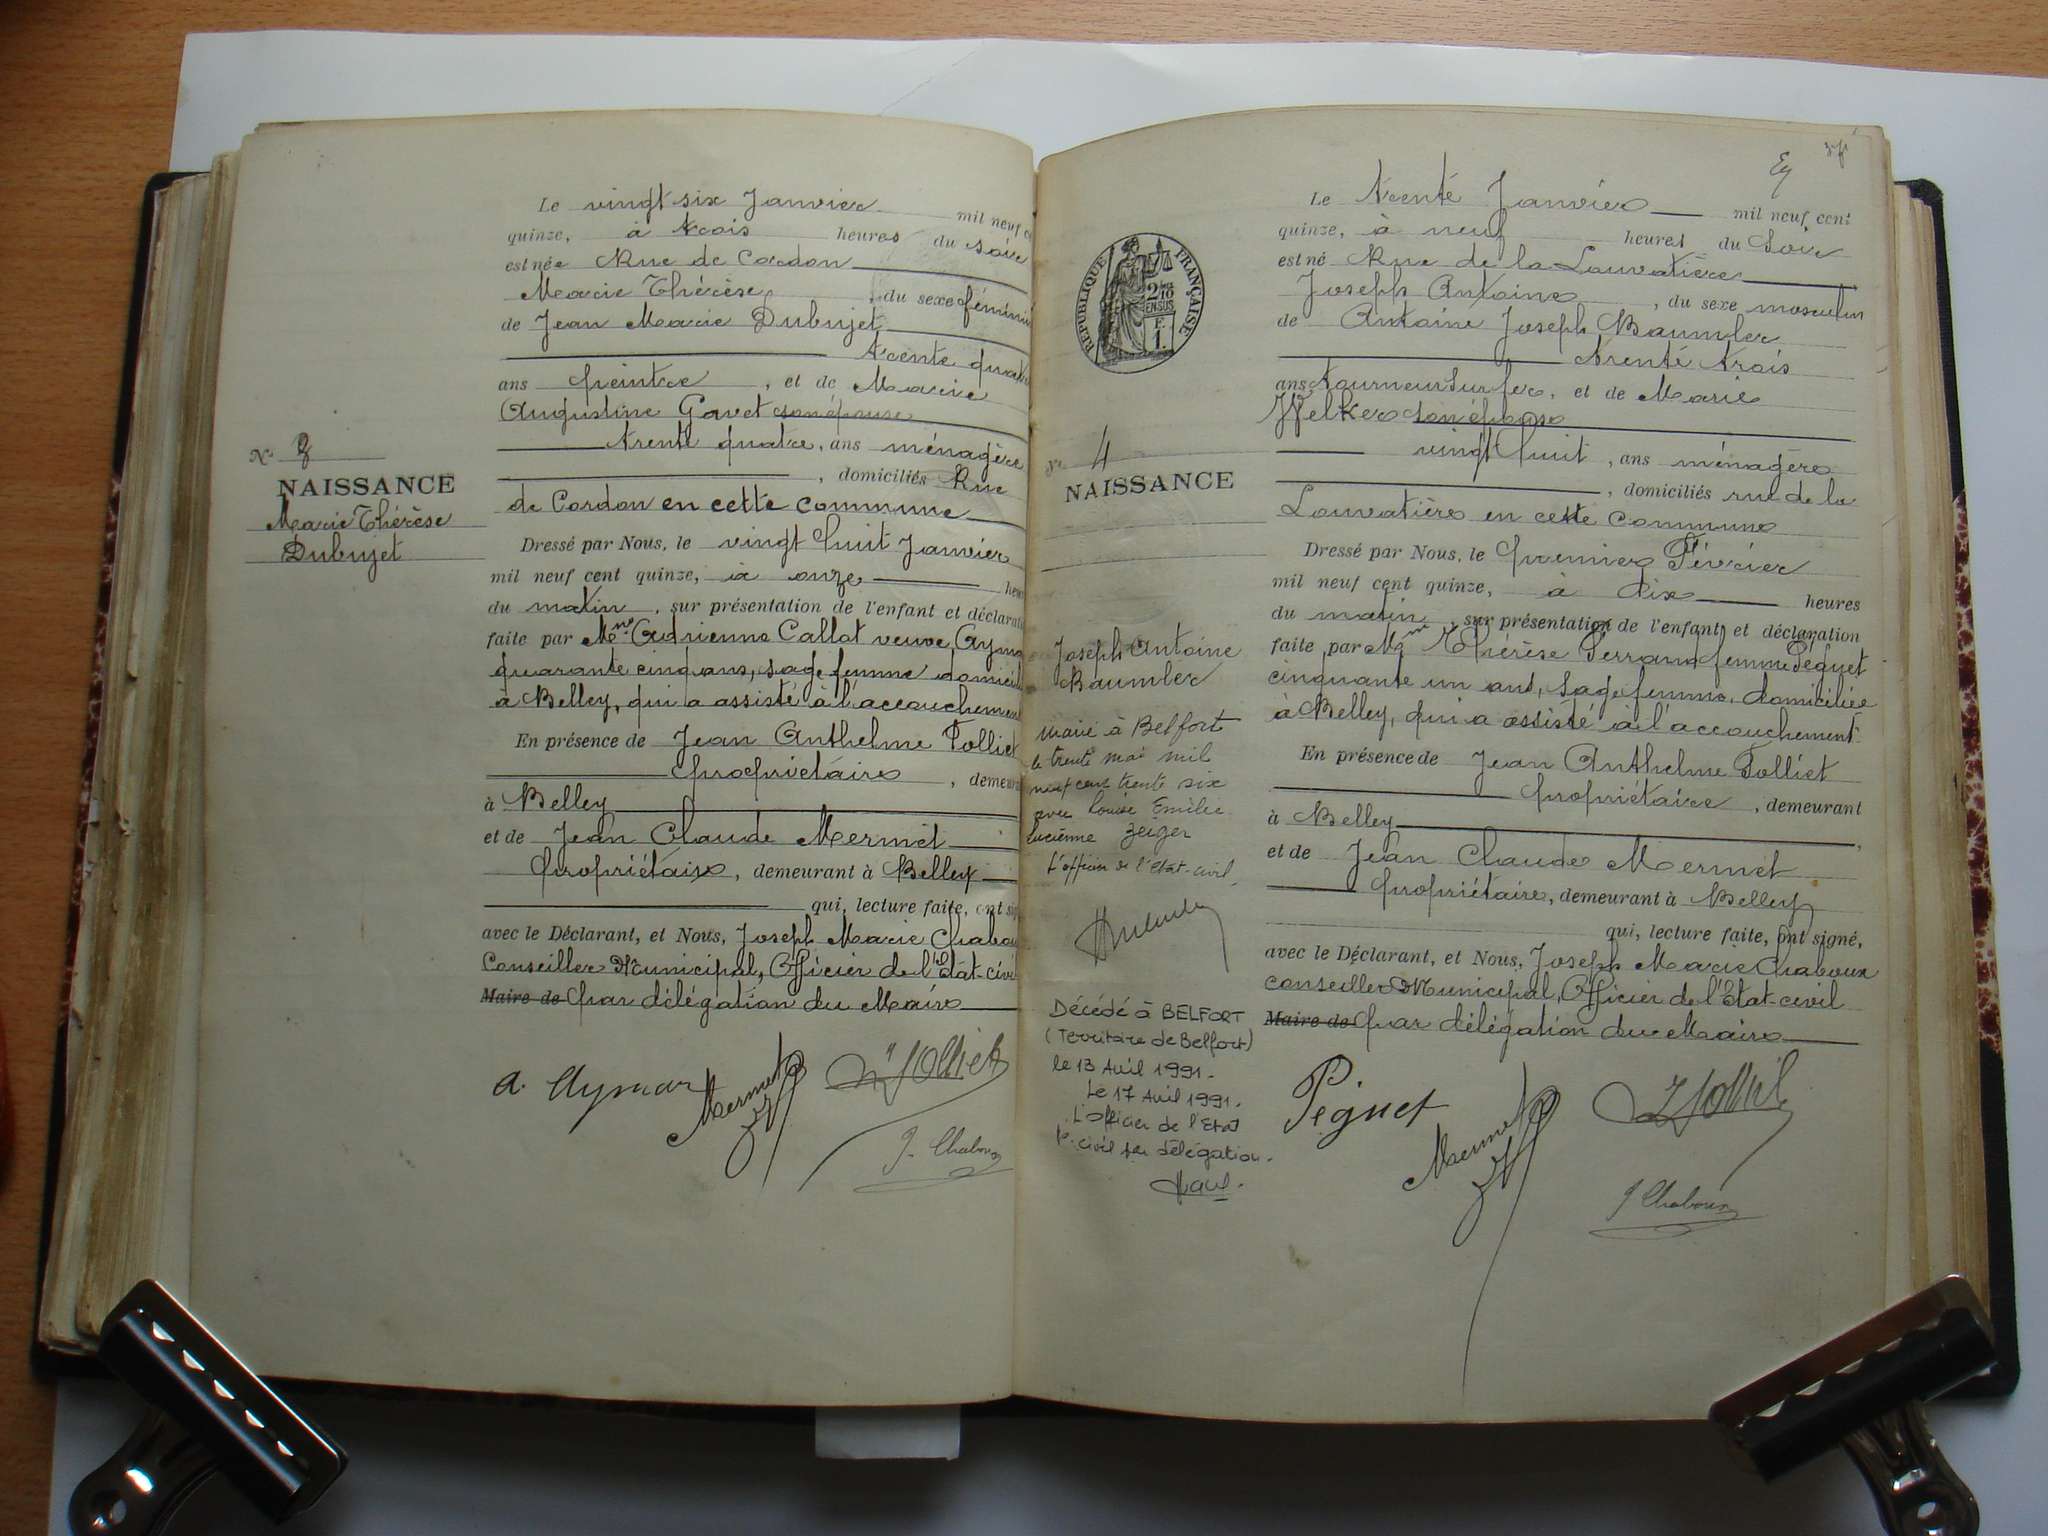 Le vingt six Janvier mil neuf
quinze, à trois heures du soir
est née Rue de Cordon
Marie Thérèse, du sexe fémini
de Jean Marie Dubujet
trente quatr
ans peintre, et de Marie
Augustine Gavet son épouse
trente quatre, ans ménagère
, domiciliés Rue
de Cordon en cette commune
Dressé par Nous, le vingt huit Janvier
mil neuf cent quinze, à onze heu
du matin, sur présentation de l'enfant et déclarat
faite par Mme Adrienne Callot veuve Ayma
quarante cinq ans, sage femme domicil
à Belley, qui a assisté à l'accouchemen
En présence de Jean Anthelme Tolliet
propriétaire, demeura
à Belley
et de Jean Claude Mermet
propriétaire, demeurant à Belley
qui, lecture faite, ont sig
avec le Déclarant, et Nous, Joseph Marie Chabou
Conseiller Municipal, Officier de l'Etat-civi
Maire de par délégation du Maire
a. Aymar Mermet Tolliet
J. Chaboux
No 3
NAISSANCE
Marie Thérèse
Dubujet
Le Trente Janvier mil neuf cent
quinze, à neuf heures du Soir
est né Rue de la Louvatière
Joseph Antoine, du sexe masculin
de Antoine Joseph Baumler
trente trois
ans tourneur sur fer, et de Marie
Welker son épouse
vingt huit, ans ménagère
, domiciliés rue de la
Louvatière en cette commune
Dressé par Nous, le premier Février
mil neuf cent quinze, à dix heures
du matin, sur présentation de l'enfant et déclaration
faite par Mme Thérèse Perrand femme Péguet
cinquante un ans, Sage femme, domiciliée
à Belley, qui a assisté à l'accouchement
En présence de Jean Anthelme Tolliet
propriétaire, demeurant
à Belley,
et de Jean Claude Mermet
propriétaire, demeurant à Belley
qui, lecture faite, ont signé,
avec le Déclarant, et Nous, Joseph Marie Chaboux
Conseiller Municipal, Officier de l'Etat-civil
Maire de par délégation du Maire
Péguet Mermet Tolliet
J Chaboux
RÉPUBLIQUE FRANÇAISE
2/10 EN SUS
1 F.
No 4
NAISSANCE
Joseph Antoine
Baumler
Marié à Belfort
le trente mai mil
neuf cent trente six
avec Louise Emilie
Lucienne Zeiger
L'officier de l'Etat-civil.
Décédé à BELFORT
(Territoire de Belfort)
le 13 Avril 1991.
Le 17 Avril 1991.
L'officier de l'Etat
civil par délégation.